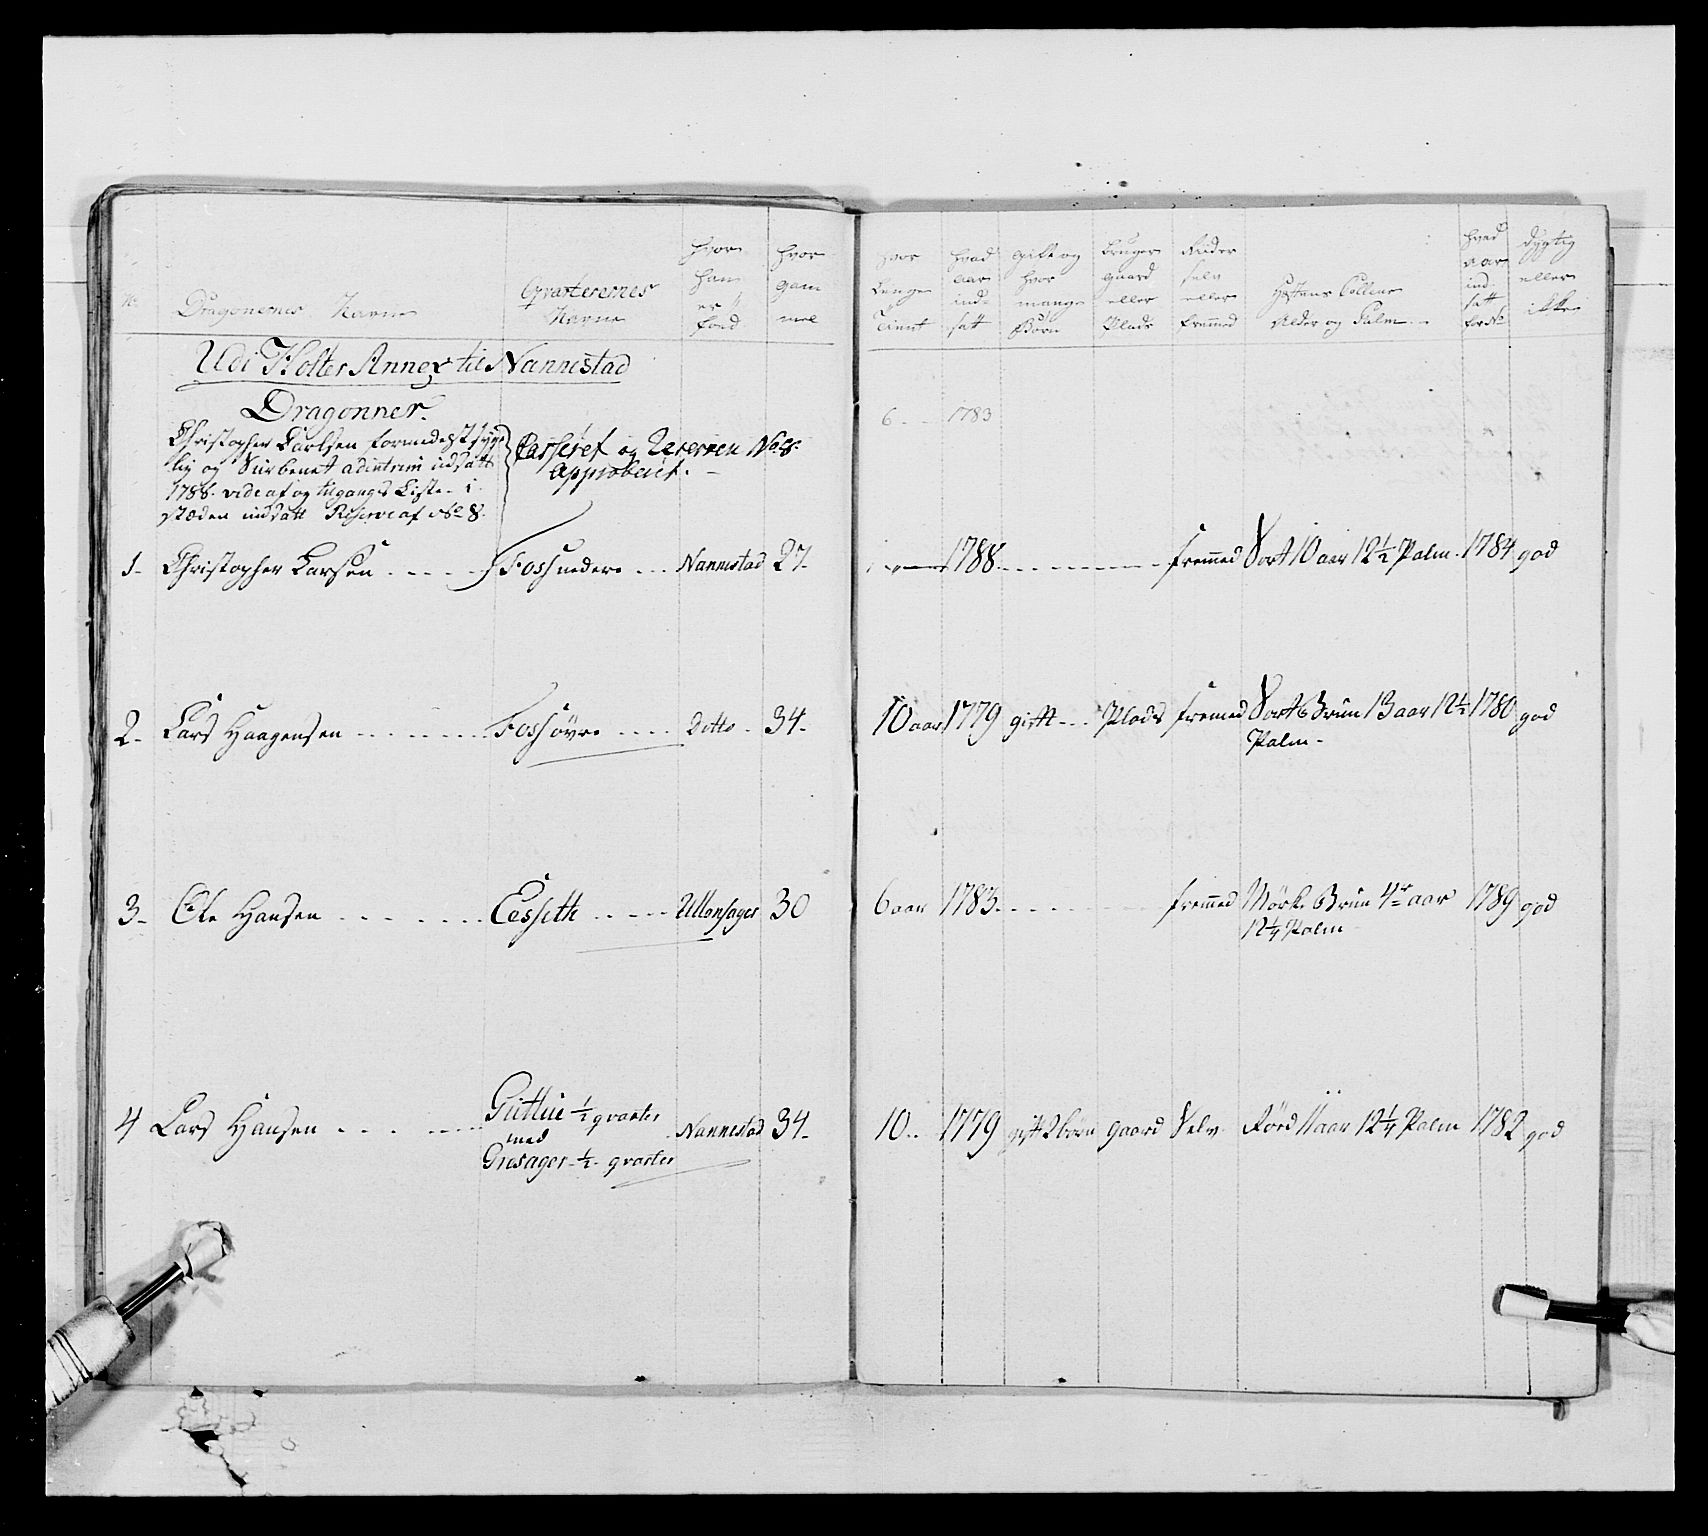 No
Dragonernes Navne
Qvarterernes Navne
hvor han er föed
hvor gam mel
hvor lenge tient
hvad aar ind= satt
gift og hvor mange Börn
bruger gaard eller Plads
Rüder selv eller fremmed
Hæstens Colleur Alder og Palm
hvad aar ind= satt for No
dygtig eller ikke
Udi Holter Annex til Nannestad
Dragonner.
Christopher Carlsen formedelst syge
lig og Surbenet ad intrim udsatt
1788. vide af og tilgangs Liste - i
stæden indsatt Reserve af No 8.
Casseret og Reserven No 8.
Approberet. -
6 - 1783
1- Christopher Larsen - - - - - Foss nedere - - - Nannestad 27- 1788 - - - - fremmed Sort 10 aar 12½ Palm - 1784 god
2- Lars Haagensen - - - - - - - Foss övre - - - - Ditto - 34- 10 aar 1779 gift - - - Plads fremed Sort Brün 13 aar 12½ 1780 god
Palm -
3- Ole Hansen - - - - - - Eesseth - - - - - Ullensager 30 6 aar 1783 - - - - fremmed Mörk Brün 4re aar 1789 god
12¼ Palm -
4 Lars Hansen - - - - - - Güttue ½ qvarter
med
Nannestad 34- 10 - - 1779 gift 2 börn gaard Selv Röed 11 aar 12¼ Palm 1782 god
Gresager ½ - qvarter